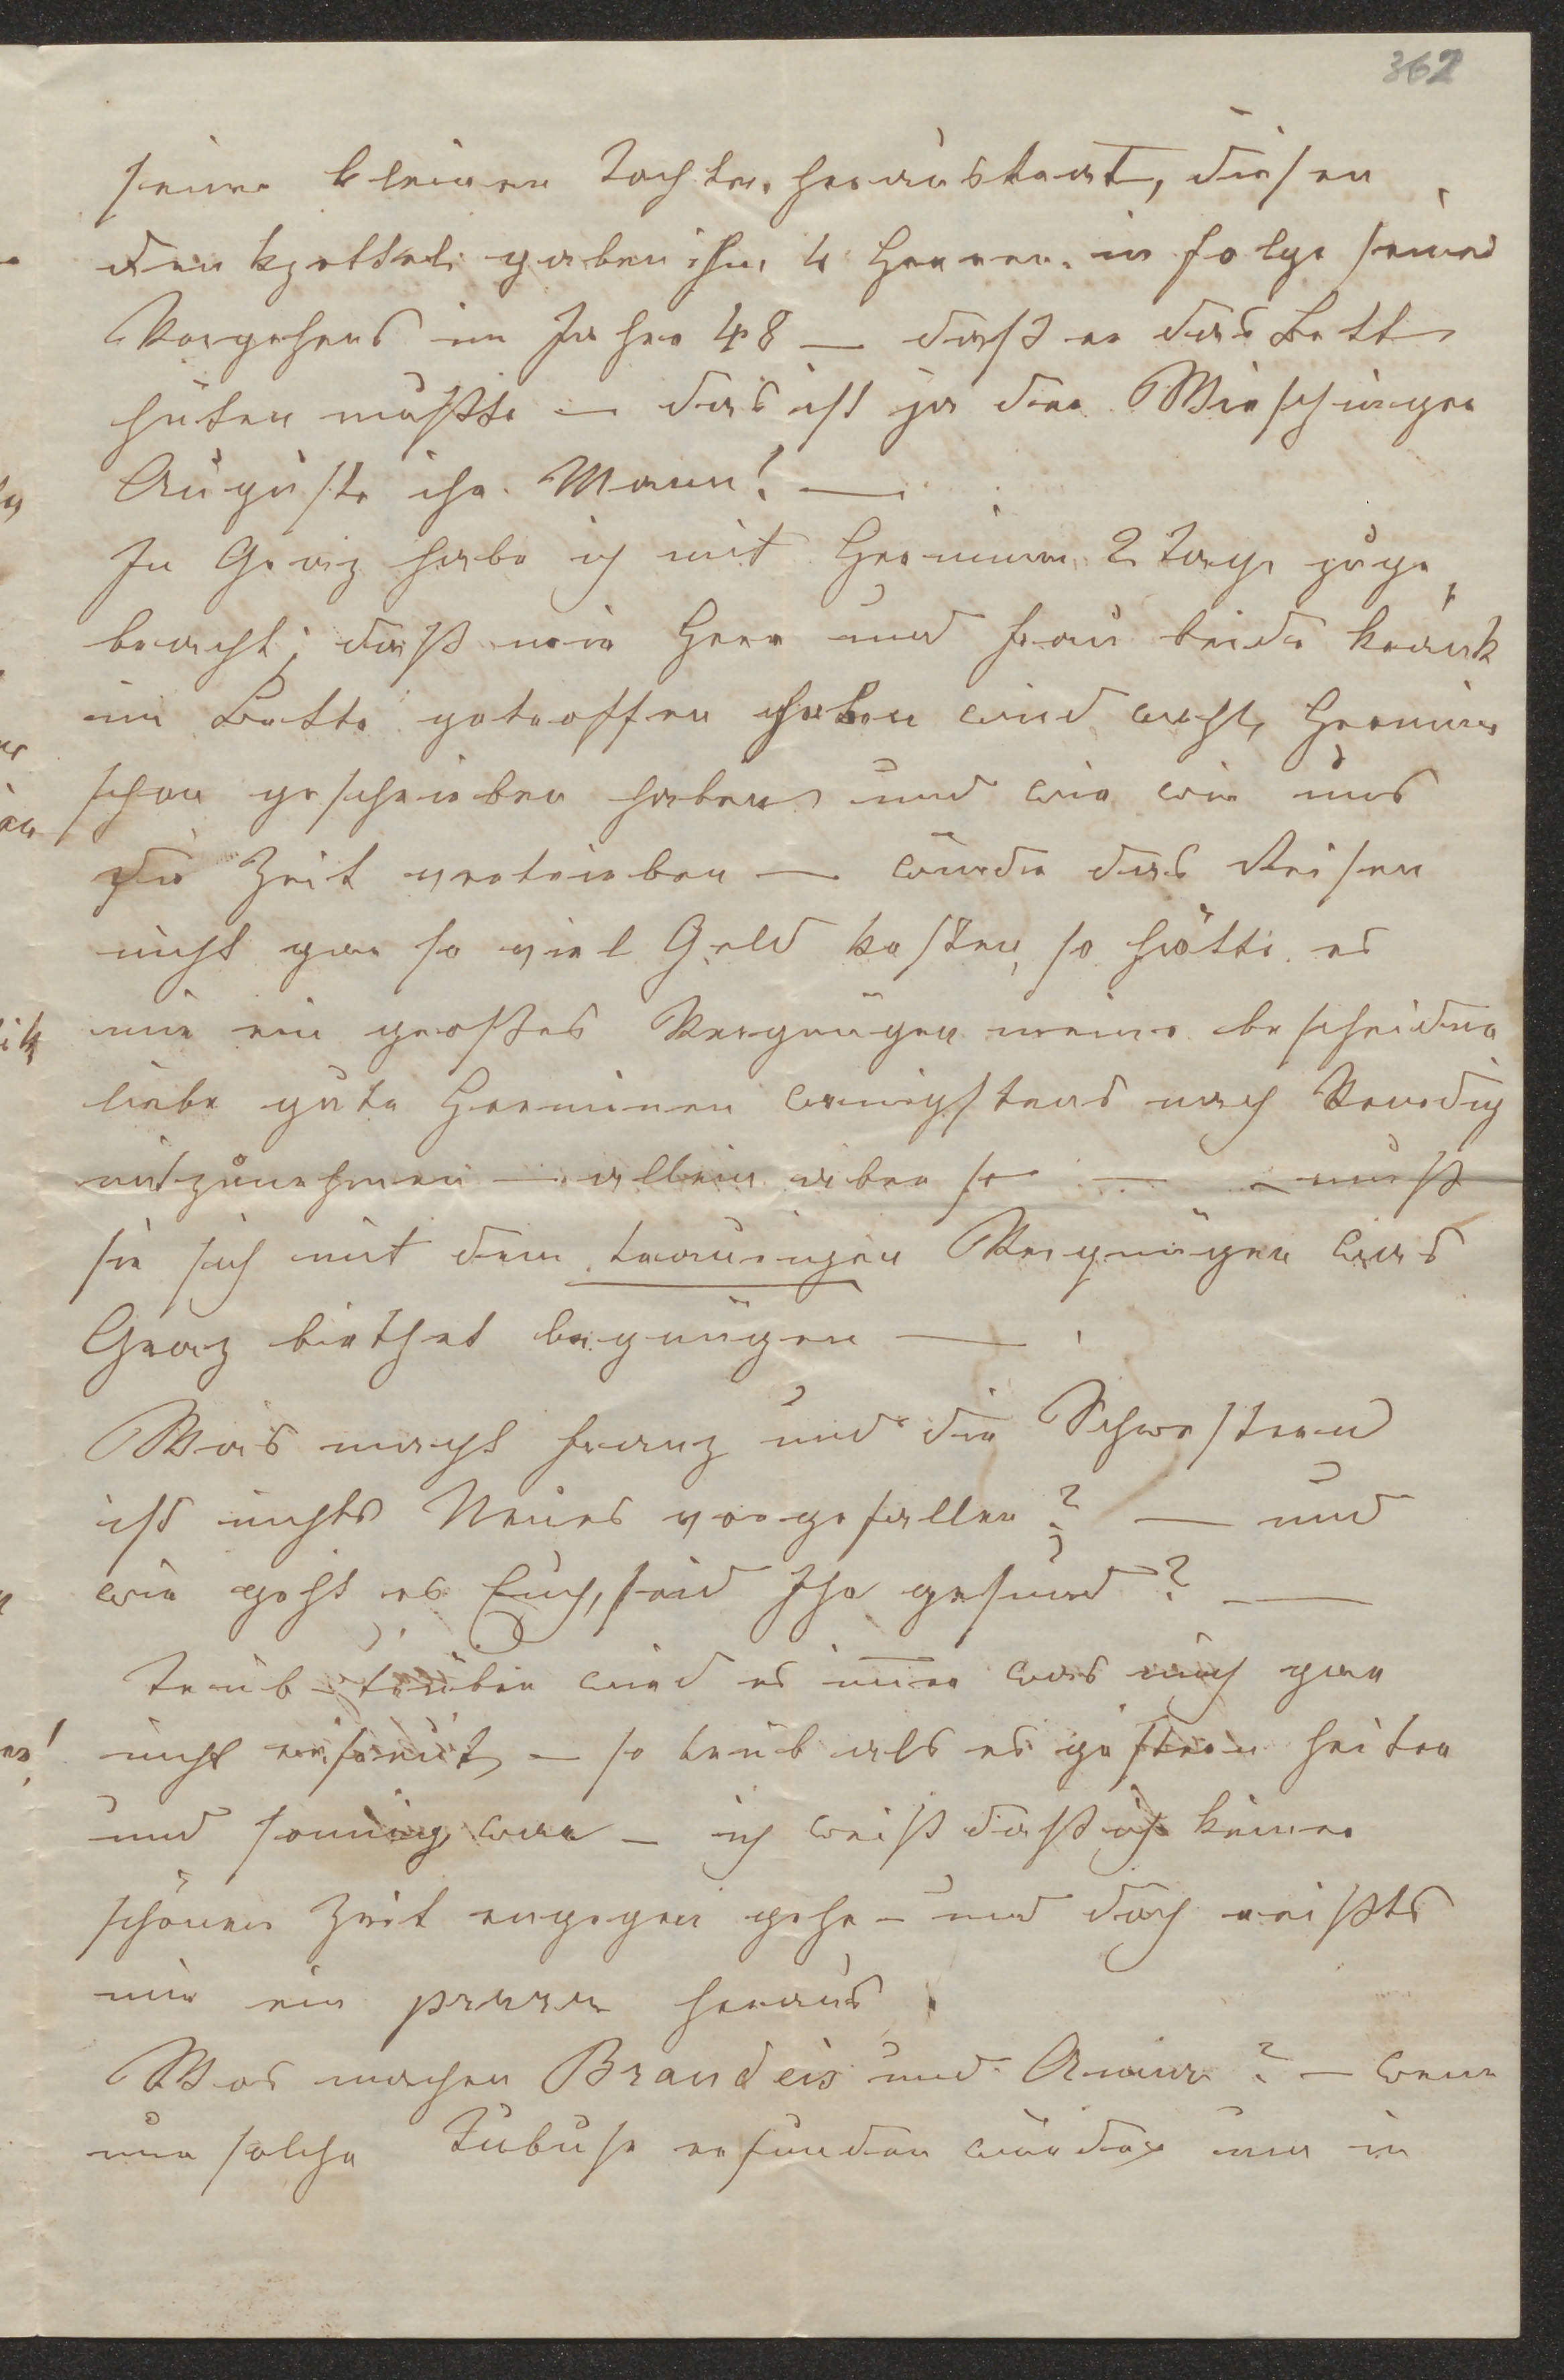 362
seiner kleinen Tochter heraustrat, diesen
Denkzettel gaben ihm 4 Herren in Folge seines
Vorgehens im Jahre 48 — daß er das Bett
hüten mußte — das ist ja der
Auguste ihr Mann! —
In Graz habe ich mit Hermine 2 Tage zuge¬
bracht; daß wir Herr und Frau beide krank
im Bette getroffen haben wird wohl Hermine
schon geschrieben haben und wie wir uns
die Zeit vertrieben — würde das Reisen
nicht gar so viel Geld kosten, so hätte es
mir ein großes Vergnügen meine bescheidene
liebe gute Herminen wenigstens nach Venedig
mitzunehmen — allein aber so — muß
sie sich mit dem traurigen Vergnügen was
Graz biethet begnügen —
Was macht Franz und die Schwestern
ist nichts Neues vorgefallen? — und
wie geht es Euch, seid Ihr gesund? —
Trüb — trüber wird es immer was mich gar
nicht erfreut — so trüb als es gestern heiter
und sonnig war — ich weiß daß ich keiner
schönen Zeit engegen gehe — und doch reißts
mir ein heraus.
Was machen Brandeis und Anna? — wenn
nur solche Tubuse erfunden würden um in